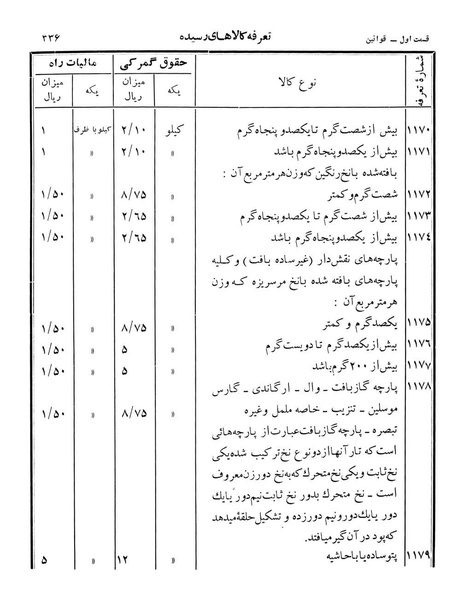 قسمت اول ــ قوانین    تعرفه کالاهای رسیده    ۲۳۶
شمارهٔ تعرفه    نوع کالا    حقوق گمرکی    مالیات راه
یکه    میزان ریال    یکه    میزان ریال
۱۱۷۰    بیش از شصت گرم تا یکصدو پنجاه گرم    کیلو    ۲/۱۰    کیلو با ظرف    ۱
۱۱۷۱    بیش از یکصدو پنجاه گرم باشد    »    ۲/۱۰    »    ۱
بافته شده با نخ رنگین که وزن هر متر مربع آن :
۱۱۷۲    شصت گرم و کمتر    »    ۸/۷۵    »    ۱/۵۰
۱۱۷۳    بیش از شصت گرم تا یکصدو پنجاه گرم    »    ۲/۶۵    »    ۱/۵۰
۱۱۷٤    بیش از یکصدو پنجاه گرم باشد    »    ۲/۶۵    »    ۱/۵۰
پارچه های نقش دار (غیر ساده بافت) و کلیه
پارچه های بافته شده با نخ مرسریزه که وزن
هر متر مربع آن :
۱۱۷۵    یکصد گرم و کمتر    »    ۸/۷۵    »    ۱/۵۰
۱۱۷۶    بیش از یکصد گرم تا دویست گرم    »    ۵    »    ۱/۵۰
۱۱۷۷    بیش از ۲۰۰ گرم باشد    »    ۵    »    ۱/۵۰
۱۱۷۸    پارچه گاز بافت ـ وال ـ ارگاندی ـ گارس
موسلین ـ تنزیب ـ خاصه ململ و غیره    »    ۸/۷۵    »    ۱/۵۰
تبصره ـ پارچه گاز بافت عبارت از پارچه هائی
است که تار آنها از دو نوع نخ ترکیب شده یکی
نخ ثابت و یکی نخ متحرک که به نخ دورزن معروف
است ـ نخ متحرک بدور نخ ثابت نیم دور یا یک
دور یا یک دور و نیم دور زده و تشکیل حلقه میدهد
که پود در آن گیر میافتد.
۱۱۷۹    پتو ساده یا با حاشیه    »    ۱۲    »    ۵